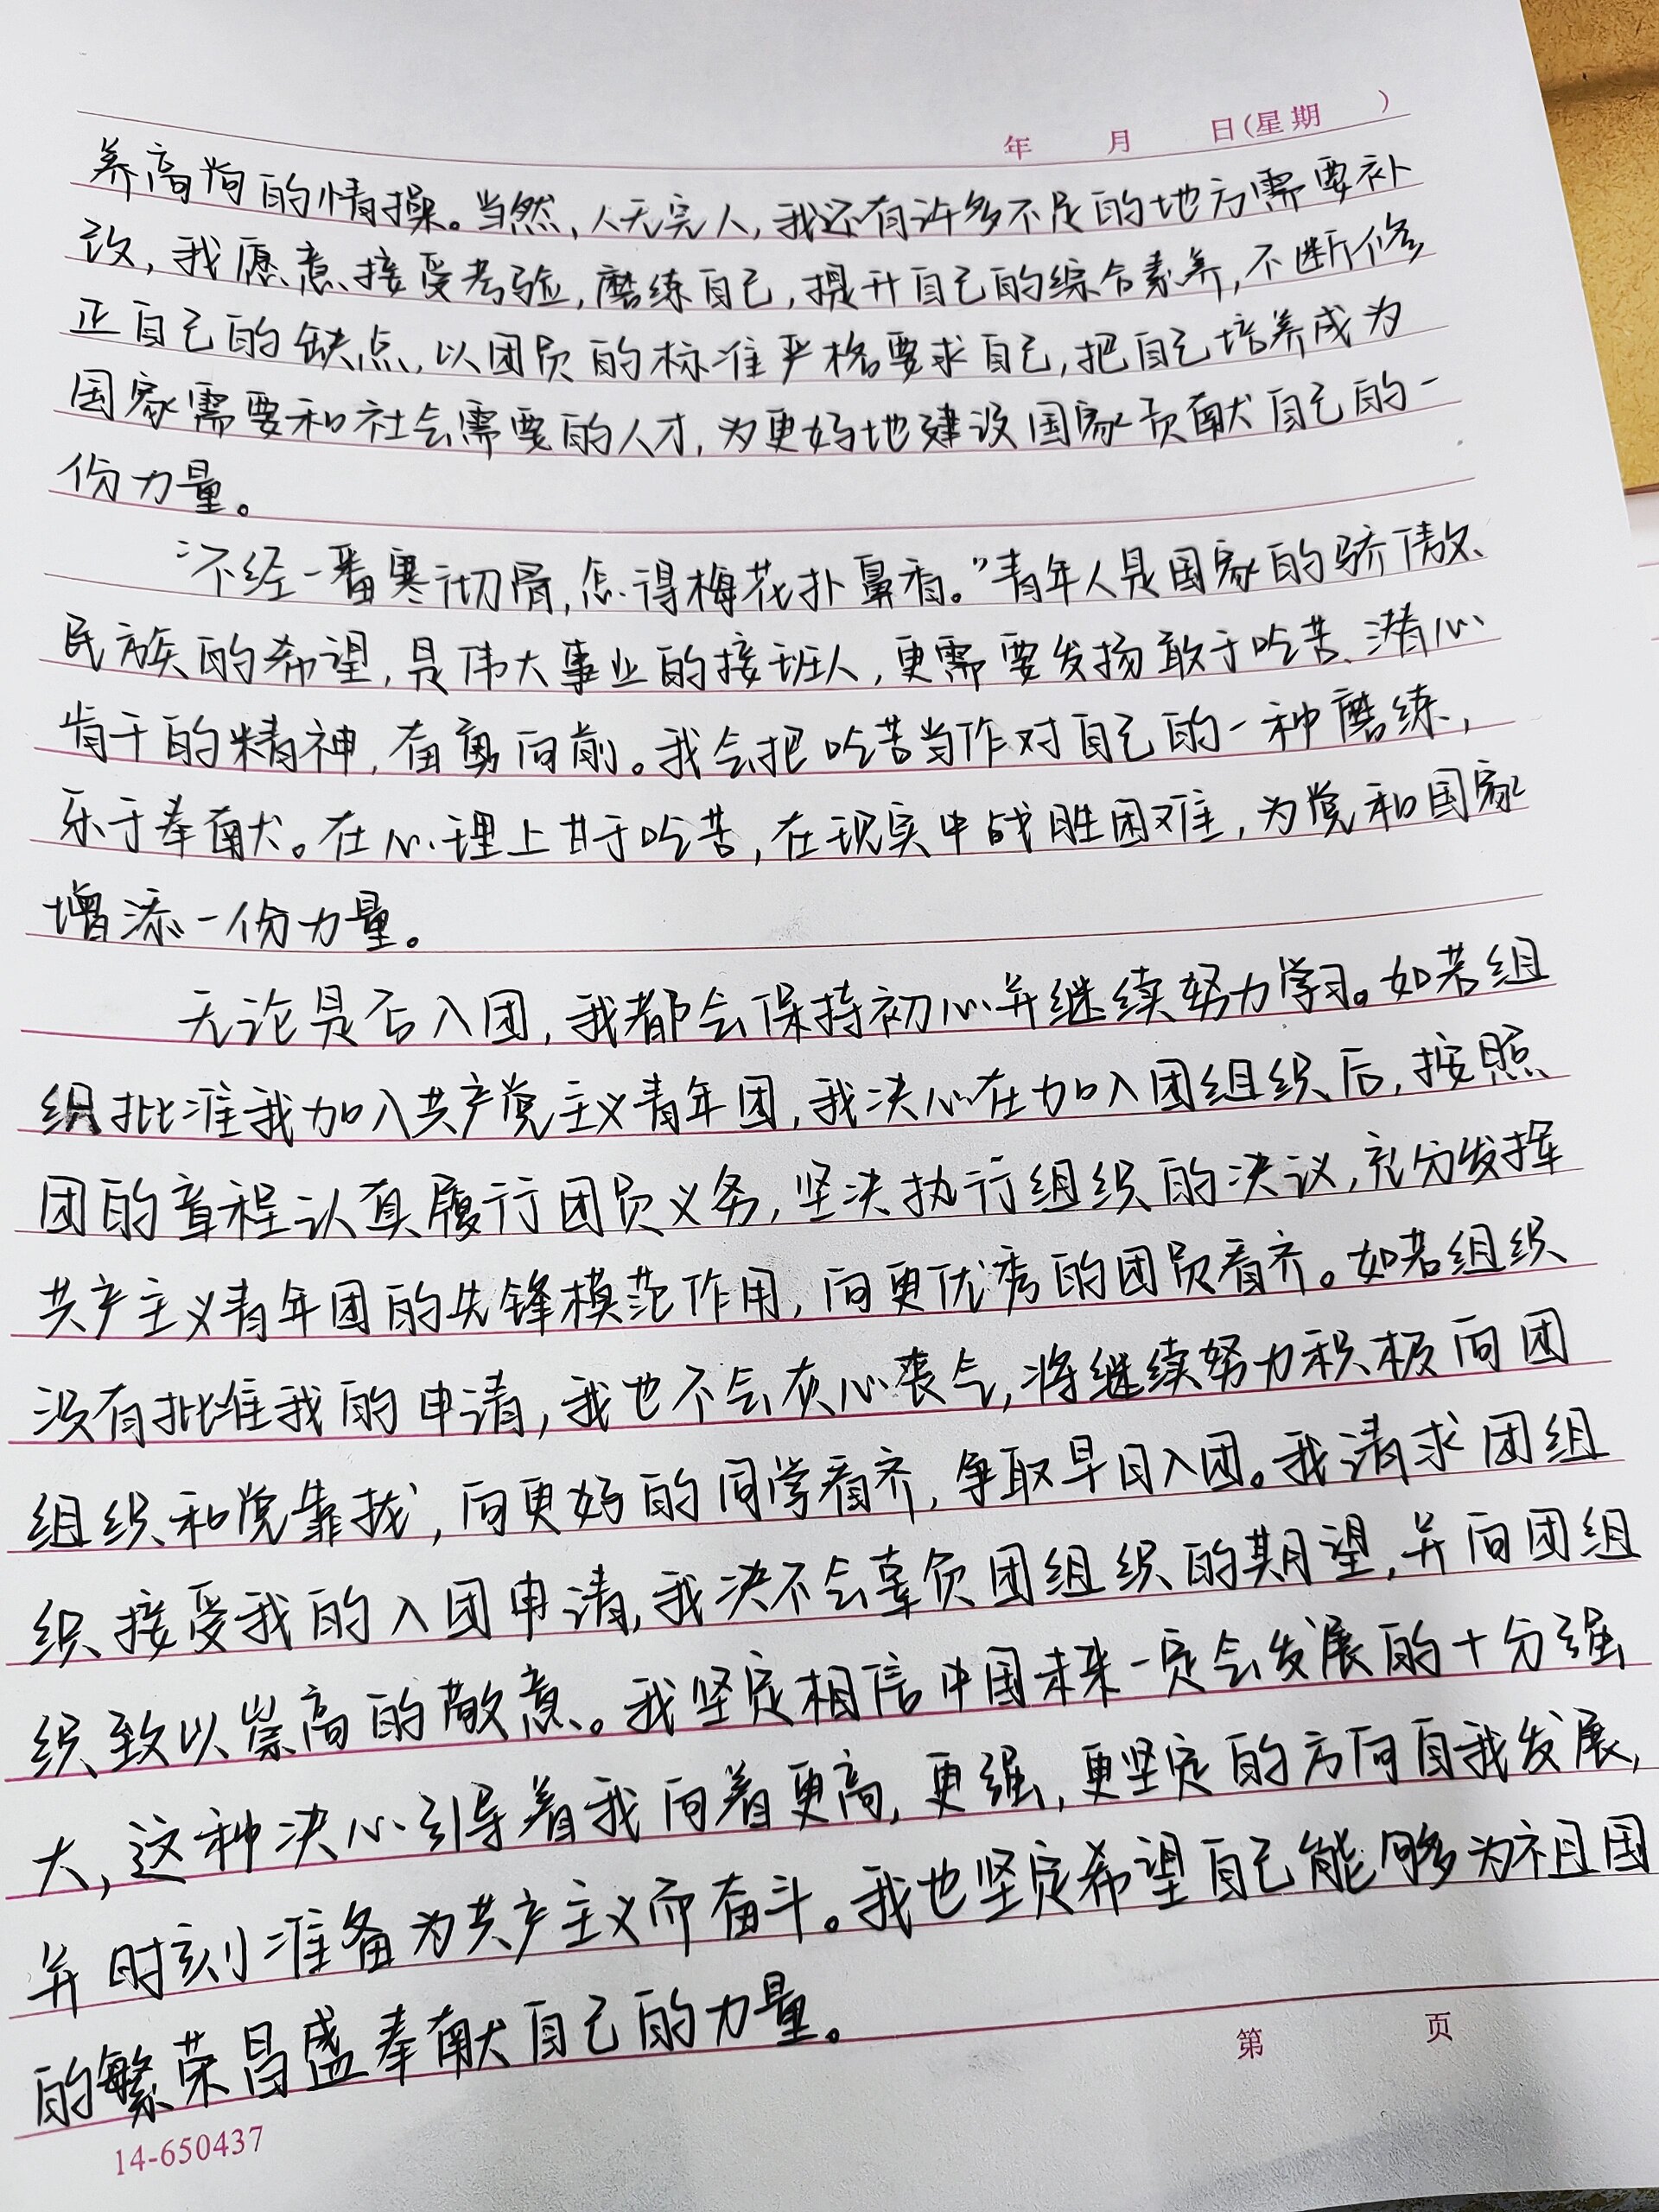 年 月 日(星期 )
养高尚的情操。当然,人无完人,我还有许多不足的地方需要补
改,我愿意接受考验,磨练自己,提升自己的综合素养,不断修
正自己的缺点,以团员的标准严格要求自己,把自己培养成为
国家需要和社会需要的人才,为更好地建设国家贡献自己的一
份力量。
“不经一番寒彻骨,怎得梅花扑鼻香。”青年人是国家的骄傲、
民族的希望,是伟大事业的接班人,更需要发扬敢于吃苦、潜心
肯干的精神,奋勇向前。我会把吃苦当作对自己的一种磨练,
乐于奉献。在心理上甘于吃苦,在现实中战胜困难,为党和国家
增添一份力量。
无论是否入团,我都会保持初心并继续努力学习。如若组
织批准我加入共产党主义青年团,我决心在加入团组织后,按照
团的章程认真履行团员义务,坚决执行组织的决议,充分发挥
共产主义青年团的先锋模范作用,向更优秀的团员看齐。如若组织
没有批准我的申请,我也不会灰心丧气,将继续努力积极向团
组织和党靠拢,向更好的同学看齐,争取早日入团。我请求团组
织接受我的入团申请,我决不会辜负团组织的期望,并向团组
织致以崇高的敬意。我坚定相信中国未来一定会发展的十分强
大,这种决心引导着我向着更高,更强,更坚定的方向自我发展,
并时刻准备为共产主义而奋斗。我也坚定希望自己能够为祖国
的繁荣昌盛奉献自己的力量。
第 页
14-650437